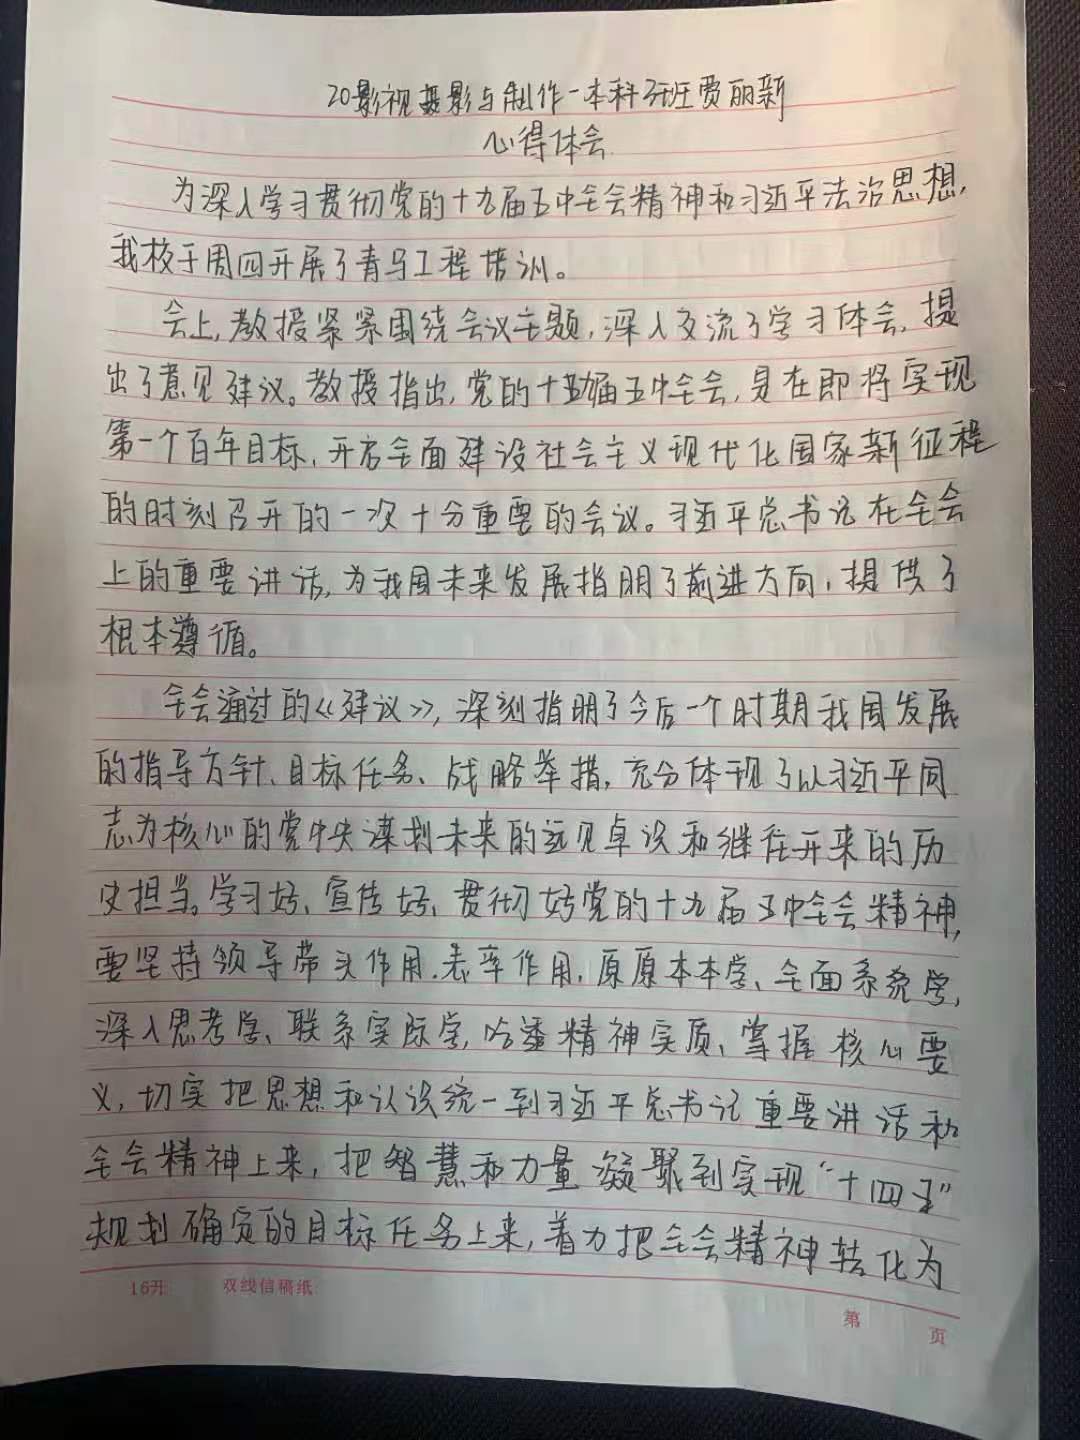 20影视摄影与制作一本科3班贾丽新
心得体会
为深入学习贯彻党的十九届五中全会精神和习近平法治思想，
我校于周四开展了青马工程培训。
会上，教授紧紧围绕会议主题，深入交流了学习体会，提
出了意见建议。教授指出，党的十九届五中全会，是在即将实现
第一个百年目标、开启全面建设社会主义现代化国家新征程
的时刻召开的一次十分重要的会议。习近平总书记在全会
上的重要讲话，为我国未来发展指明了前进方向，提供了
根本遵循。
全会通过的《建议》，深刻指明了今后一个时期我国发展
的指导方针、目标任务、战略举措，充分体现了以习近平同
志为核心的党中央谋划未来的远见卓识和继往开来的历
史担当。学习好、宣传好、贯彻好党的十九届五中全会精神，
要坚持领导带头作用、表率作用，原原本本学、全面系统学，
深入思考学、联系实际学，吃透精神实质、掌握核心要
义，切实把思想和认识统一到习近平总书记重要讲话和
全会精神上来，把智慧和力量凝聚到实现“十四五”
规划确定的目标任务上来，着力把全会精神转化为
16开 双线信稿纸
第 页